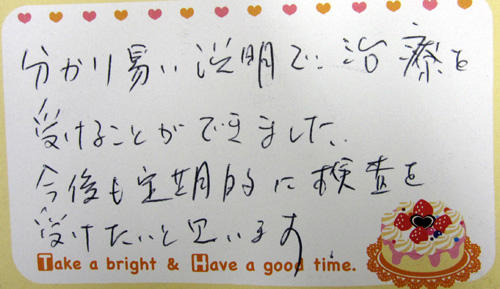 分かり易い説明で治療を
受けることができました.
今後も定期的に検査を
受けたいと思います
Take a bright & Have a good time.